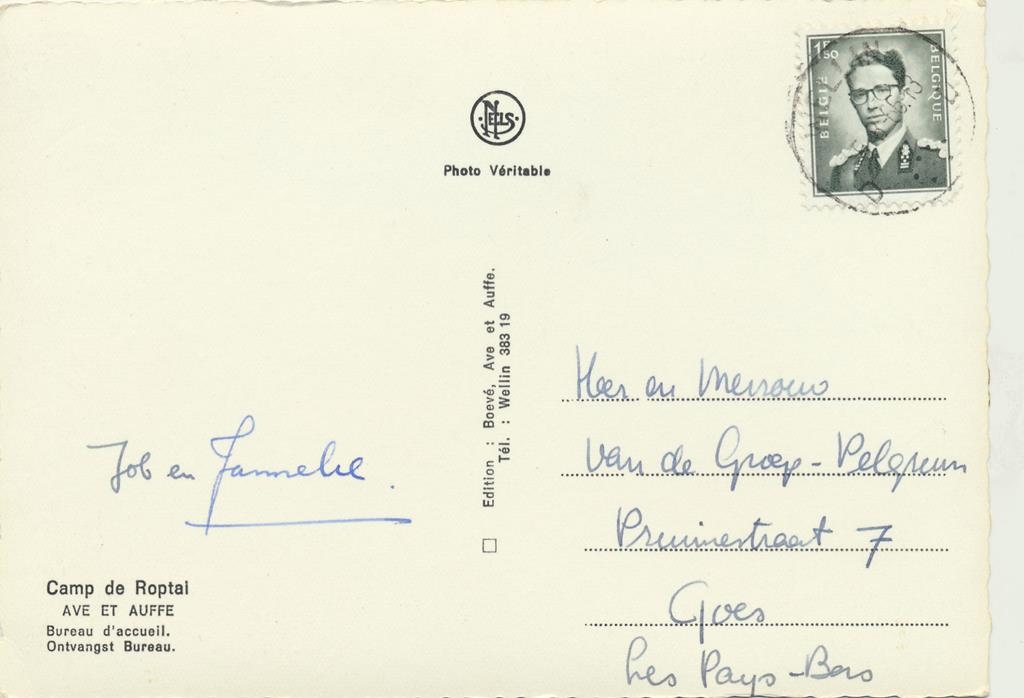 NELS
Photo Véritable
1F50
BELGIË
BELGIQUE
WELLIN
Edition : Boevé, Ave et Auffe.
Tél. : Wellin 383 19
Job en Janneke.
Camp de Roptai
AVE ET AUFFE
Bureau d'accueil.
Ontvangst Bureau.
Heer en Mevrouw
Van de Groep - Pelgreum
7
Goes
Les Pays-Bas